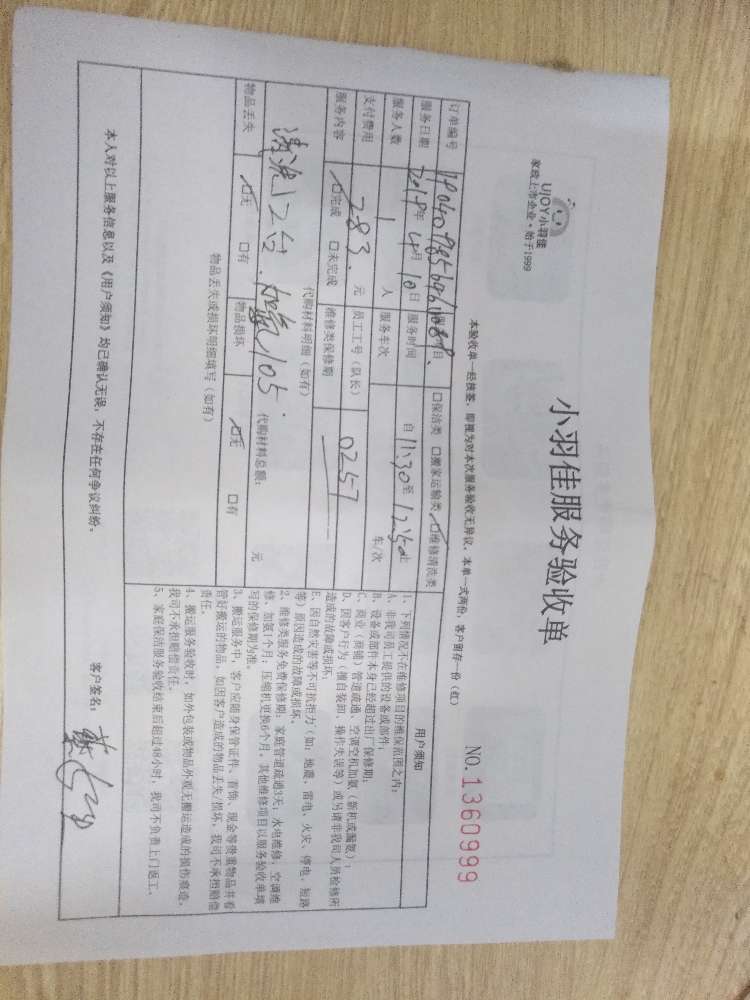 UJOY小羽佳
家政上市企业·始于1999
小羽佳服务验收单
NO.1360999
本验收单一经接签，即视为对本次服务验收无异议，本单一式两份，客户留存一份（红）
订单编号
服务项目 口保洁类 口搬家运输类 口维修清洗类
服务日期 2019年4月10日 服务时间 自11:30至12:50止
服务人数 1人 服务车次 车/次
支付费用 283.元 员工工号（队长） 0257
服务内容 口完成 口未完成 维修类保修期
代购材料明细（如有）
清洗2台.加氨105.
代购材料总额： 元
物品丢失 口无 口有 物品损坏 口无 口有
物品丢失或损坏明细填写（如有）
用户须知
1、下列情况不在维修项目的维保范围之内：
A、非我司员工提供的设备或部件；
B、设备或部件本身已经超过出厂保修期；
C、商业（商铺）管道疏通、空调空机加氨（新机或漏氨）；
D、因客户行为（擅自装卸、操作失误等）或另请非我司人员检修所
造成的故障或损坏；
E、因自然灾害等不可抗拒力（如：地震、雷电、火灾、停电、短路
等）原因造成的故障或损坏。
2、维修类服务免费保修期：家庭管道疏通3天；水电维修、空调维
修、加氨1个月；压缩机更换6个月，其他维修项目以服务验收单填
写的保修期为准。
3、搬运服务中，客户应随身保管证件、首饰、现金等贵重物品并看
管好搬运的物品，如因客户造成的物品丢失/损坏，我司不承担赔偿
责任。
4、搬运服务验收时，如外包装或物品外观无搬运造成的损伤痕迹，
我司不承担赔偿责任。
5、家庭保洁服务验收结束后超过48小时，我司不负责上门返工。
本人对以上服务信息以及《用户须知》均已确认无误，不存在任何争议纠纷。
客户签名：